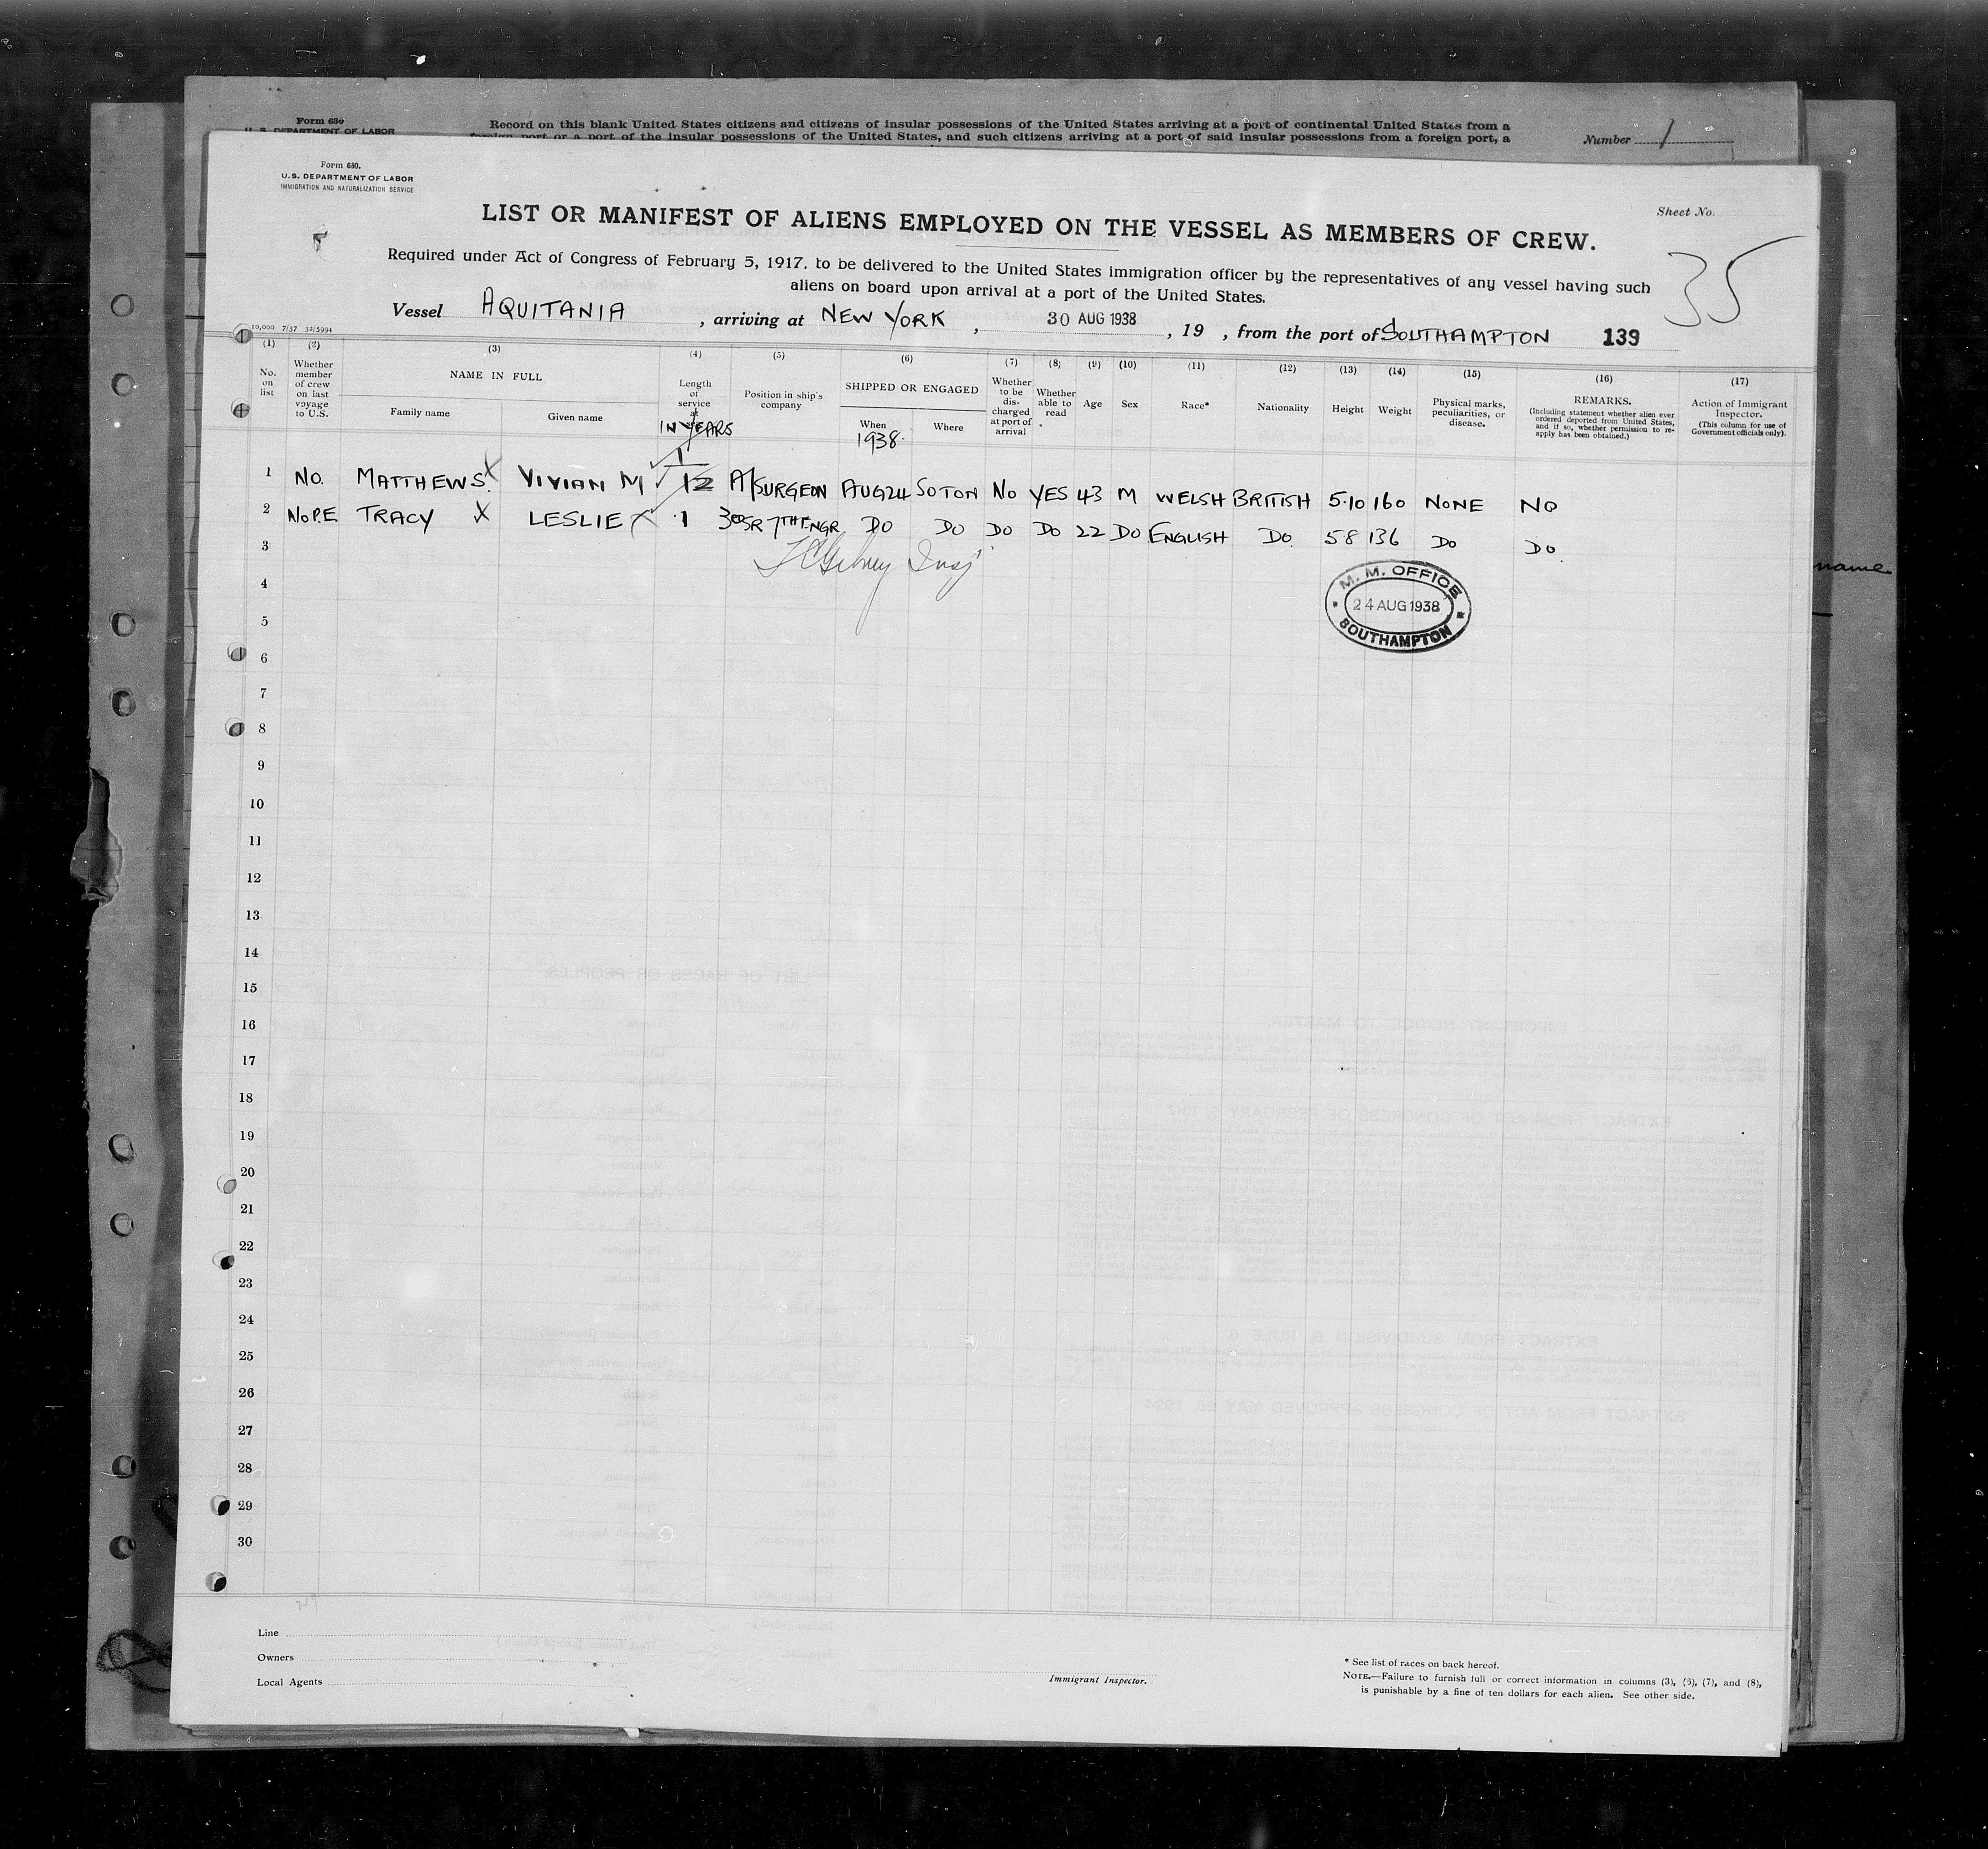 Form 630
U. S. DEPARTMENT OF LABOR
Record on this blank United States citizens and citizens of insular possessions of the United States arriving at a port of continental United States from a
foreign port or a port of the insular possessions of the United States, and such citizens arriving at a port of said insular possessions from a foreign port, a
Number 1
Form 630.
U.S. DEPARTMENT OF LABOR
IMMIGRATION AND NATURALIZATION SERVICE
Sheet No.
35
LIST OR MANIFEST OF ALIENS EMPLOYED ON THE VESSEL AS MEMBERS OF CREW.
Required under Act of Congress of February 5, 1917, to be delivered to the United States immigration officer by the representatives of any vessel having such
aliens on board upon arrival at a port of the United States.
Vessel AQUITANIA , arriving at NEW YORK , 30 AUG 1938 , 19 , from the port of SOUTHAMPTON 139
10,000 7/37 32/5994
(1) (2) (3) (4) (5) (6) (7) (8) (9) (10) (11) (12) (13) (14) (15) (16) (17)
No. on list
Whether member of crew on last voyage to U.S.
NAME IN FULL
Family name
Given name
Length of service at
IN YEARS
Position in ship's company
SHIPPED OR ENGAGED
When
1938.
Where
Whether to be discharged at port of arrival
Whether able to read
Age
Sex
Race*
Nationality
Height
Weight
Physical marks, peculiarities, or disease.
REMARKS.
(Including statement whether alien ever ordered deported from United States, and if so, whether permission to re-apply has been obtained.)
Action of Immigrant Inspector.
(This column for use of Government officials only).
1 NO. MATTHEWS X VIVIAN M 1 12 A/SURGEON AUG24 SOTON NO YES 43 M WELSH BRITISH 5·10 160 NONE NO
2 NOPE TRACY X LESLIE X ·1 SR 7TH ENGR DO DO DO DO 22 DO ENGLISH DO. 58 136 DO DO
3
4
5
6
7
8
9
10
11
12
13
14
15
16
17
18
19
20
21
22
23
24
25
26
27
28
29
30
M. M. OFFICE
24 AUG 1938
SOUTHAMPTON
name
Line
Owners
Local Agents
Immigrant Inspector.
* See list of races on back hereof.
NOTE.—Failure to furnish full or correct information in columns (3), (5), (7), and (8),
is punishable by a fine of ten dollars for each alien. See other side.